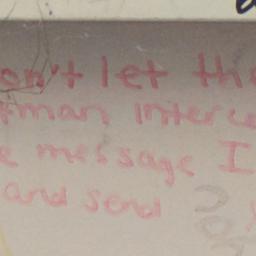 on't let the
tman interce
e message I
and send